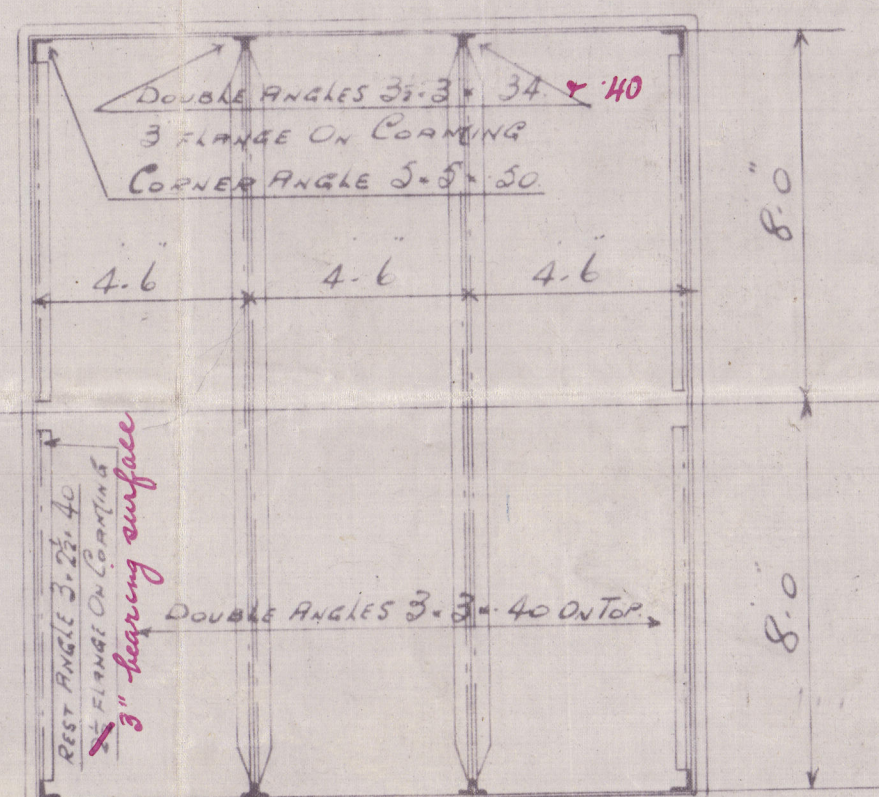 DOUBLE ANGLES 3½×3×·34 & ·40
3 FLANGE ON COAMING
CORNER ANGLE 5×5×·50
8.0"
4.6"
4.6"
4.6"
REST ANGLE 3×2½×·40
2½ FLANGE ON COAMING
3" bearing surface
DOUBLE ANGLES 3×3×·40 ON TOP.
8.0"